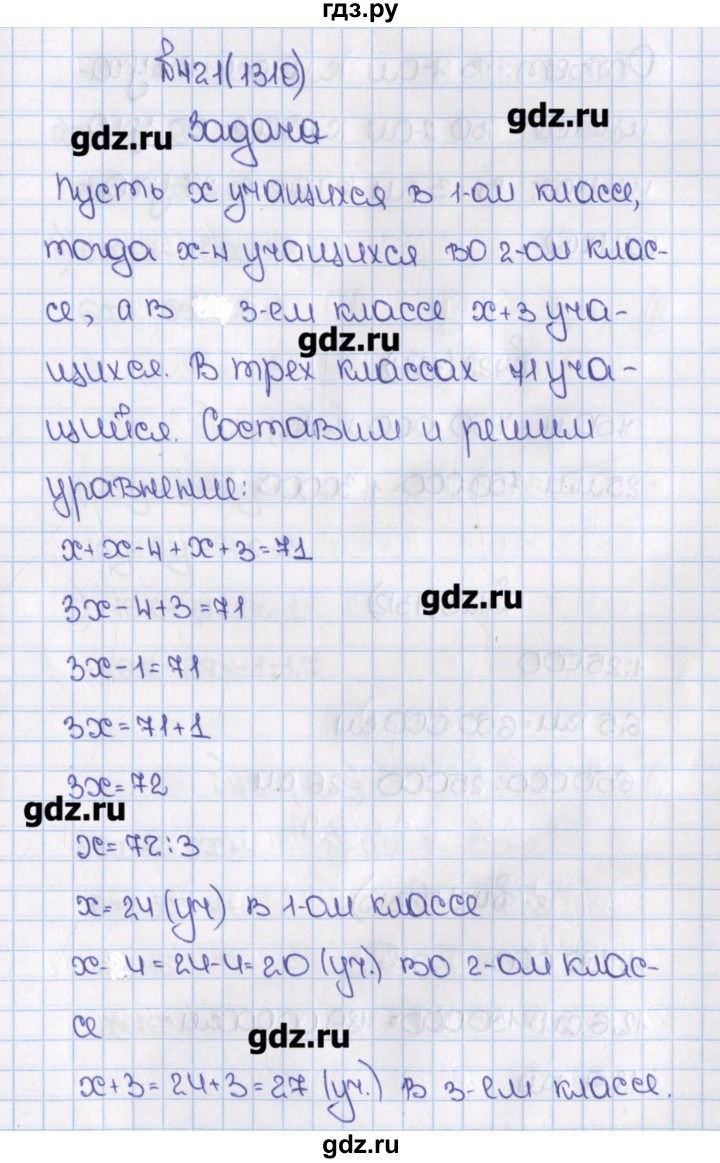 гдз.ру
№421(1310)
gdz.ru
gdz.ru Задача
Пусть x учащихся в 1-ом классе,
тогда x-4 учащихся во 2-ом клас-
се, а в 3-ем классе x+3 уча-
gdz.ru
щихся. В трех классах 71 уча-
щийся. Составим и решим
уравнение:
x+x-4+x+3=71
3x-4+3=71
gdz.ru
3x-1=71
3x=71+1
3x=72
gdz.ru
x=72:3
x=24 (уч) в 1-ом классе
x-4=24-4=20 (уч.) во 2-ом клас-
се
gdz.ru
x+3=24+3=27 (уч.) в 3-ем классе.
gdz.ru